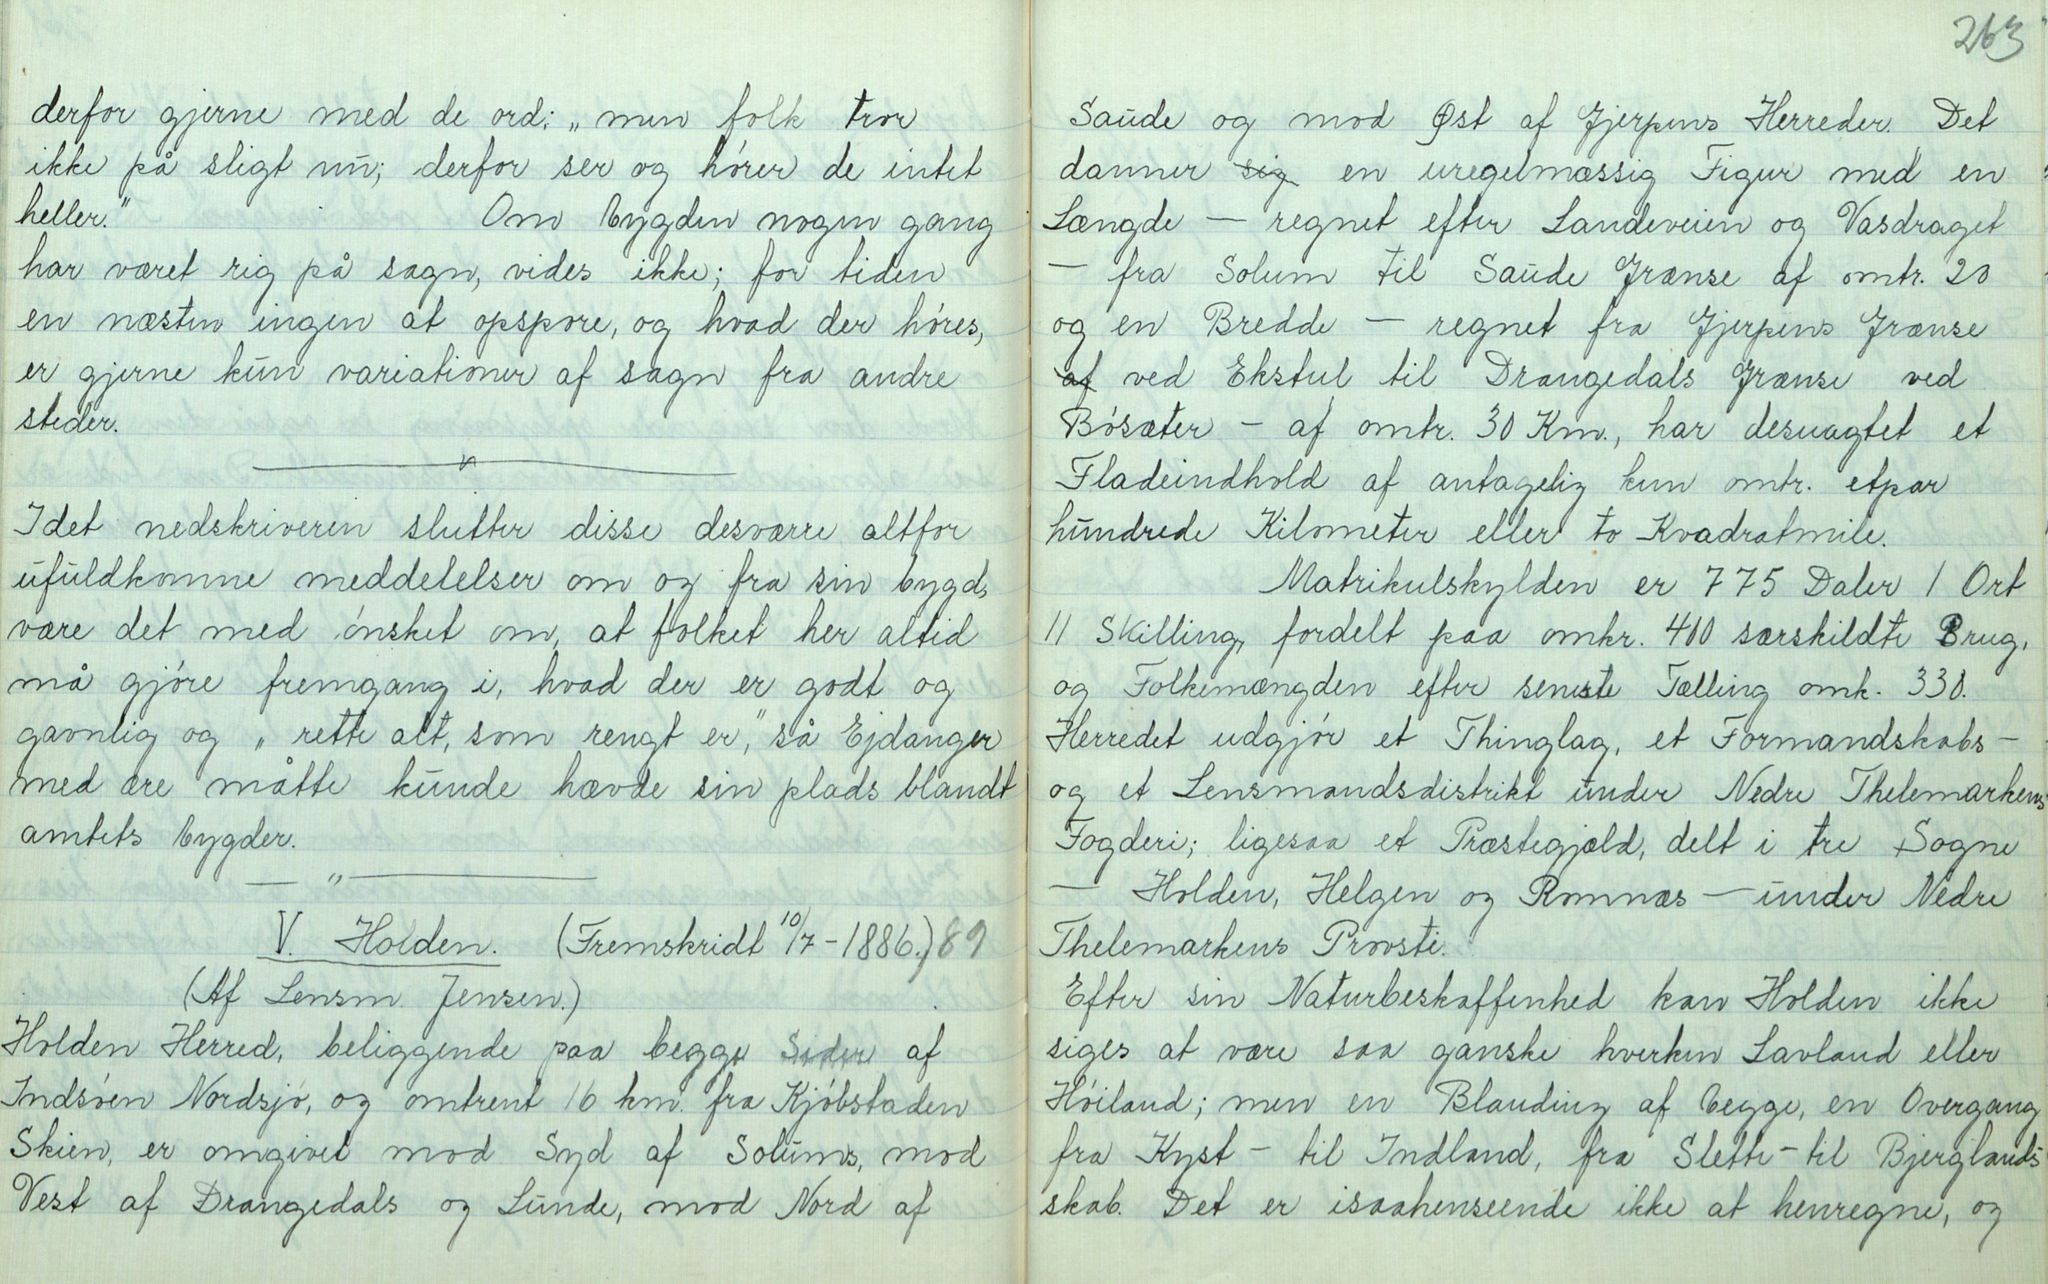 derfor gjerne med de ord: „men folk tror
ikke på sligt nu; derfor ser og hører de intet
heller." Om bygden nogen gang
har været rig på sagn, vides ikke; for tiden
en næsten ingen at opspore, og hvad der høres,
er gjerne kun variationer af sagn fra andre
steder.
Idet nedskriveren slutter disse desværre altfor
ufuldkomne meddelelser om og fra sin bygd,
være det med ønsket om, at folket her altid
må gjøre fremgang i, hvad der er godt og
gavnlig og „rette alt, som rengt er," så Ejdanger
med ære måtte kunde hævde sin plads blandt
amtets bygder.
— „ —
V. Holden. (Fremskridt 10/7 - 1886.) 89
(Af Lensm. Jensen.)
Holden Herred, beliggende paa begge Sider af
Indsøen Nordsjø, og omtrent 16 km. fra Kjøbstaden
Skien, er omgivet mod Syd af Solums, mod
Vest af Drangedals og Lunde, mod Nord af
263
Saude og mod Øst af Gjerpens Herreder. Det
danner sig en uregelmæssig Figur med en
Længde — regnet efter Landeveien og Vasdraget
— fra Solum til Saude Grænse af omtr. 20
og en Bredde — regnet fra Gjerpens Grænse
af ved Ekstul til Drangedals Grænse ved
Bøsæter — af omtr. 30 Km., har desuagtet et
Fladeindhold af antagelig kun omtr. etpar
hundrede Kilometer eller to Kvadratmile.
Matrikulskylden er 775 Daler 1 Ort
11 Skilling, fordelt paa omkr. 400 særskildte Brug,
og Folkemængden efter seneste Tælling omk. 330.
Herredet udgjør et Thinglag, et Formandskabs-
og et Lensmandsdistrikt under Nedre Thelemarkens
Fogderi; ligesaa et Præstegjæld, delt i tre Sogne
— Holden, Helgen og Romnæs — under Nedre
Thelemarkens Provsti.
Efter sin Naturbeskaffenhed kan Holden ikke
siges at være saa ganske hverken Lavland eller
Høiland; men en Blanding af begge, en Overgang
fra Kyst - til Indland, fra Slette - til Bjerglands-
skab. Det er isaahenseende ikke at henregne, og